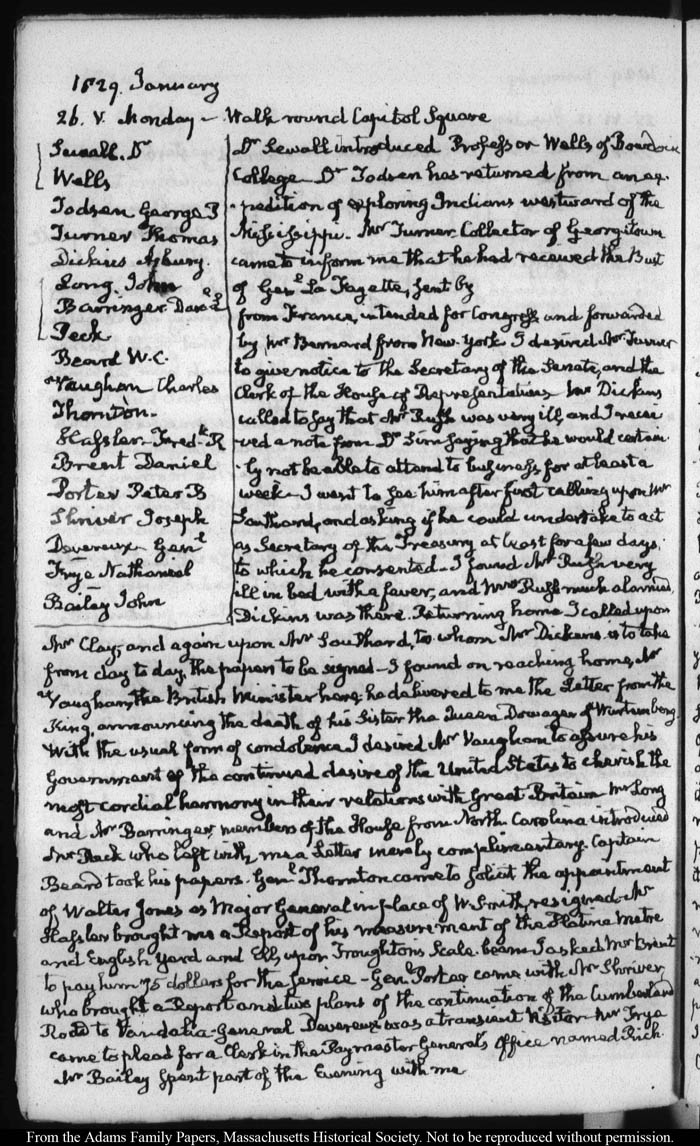 1829. January
26. V. Monday — Walk round Capitol Square
Sewall. Dr
Wells
Todsen George P
Turner Thomas
Dickins Asbury.
Long. John
Barringer Danl L
Peck
Beard W. C.
Vaughan Charles
Thornton —
Hassler Ferdk. R
Brent Daniel
Porter Peter B
Shriver Joseph
Devereux Genl
Frye Nathaniel
Bailey John
Dr Sewall introduced Professor Wells of Bowdoin
College — Dr Todsen has returned from an ex-
-pedition of exploring Indians westward of the
Mississippi. Mr Turner Collector of Georgetown
came to inform me that he had received the Bust
of Genl La Fayette, sent by
from France, intended for Congress and forwarded
by Mr Bernard from New-York I desired Mr Turner
to give notice to the Secretary of the Senate, and the
Clerk of the House of Representatives Mr Dickins
called to say that Mr Rush was very ill, and I recei-
ved a note from Dr Sim saying that he would certain-
-ly not be able to attend to business for at least a
week — I went to see him after first calling upon Mr
Southard, and asking if he could undertake to act
as Secretary of the Treasury at least for a few days;
to which he consented — I found Mr Rush very
ill in bed with a fever, and Mrs Rush much alarmed,
Dickins was there. Returning home I called upon
Mr Clay; and again upon Mr Southard, to whom Mr Dickins is to take
from day to day, the papers to be signed — I found on reaching home, Mr
Vaughan, the British Minister here; he delivered to me the Letter from the
King, announcing the death of his Sister the Queen Dowager of Wurtemberg.
With the usual form of condolence I desired Mr Vaughan to assure his
Government of the continued desire of the United States to cherish the
most cordial harmony in their relations with Great Britain Mr Long
and Mr Barringer, members of the House from North Carolina introduced
Mr Peck who left with me a Letter merely complimentary. Captain
Beard took his papers. Genl Thornton came to solicit the appointment
of Walter Jones as Major General in place of W. Smith, resigned — Mr
Hassler brought me a Report of his measurement of the Platina Metre
and English Yard and Ell, upon Troughton's Scale beam I asked Mr Brent
to pay him 75 dollars for the service — Genl Porter came with Mr Shriver,
who brought a Report and two plans of the continuation of the Cumberland
Road to Vandalia — General Devereux was a transient Visitor Mr Frye
came to plead for a Clerk in the Paymaster General's Office named Rich.
Mr Bailey spent part of the Evening with me
From the Adams Family Papers, Massachusetts Historical Society. Not to be reproduced without permission.